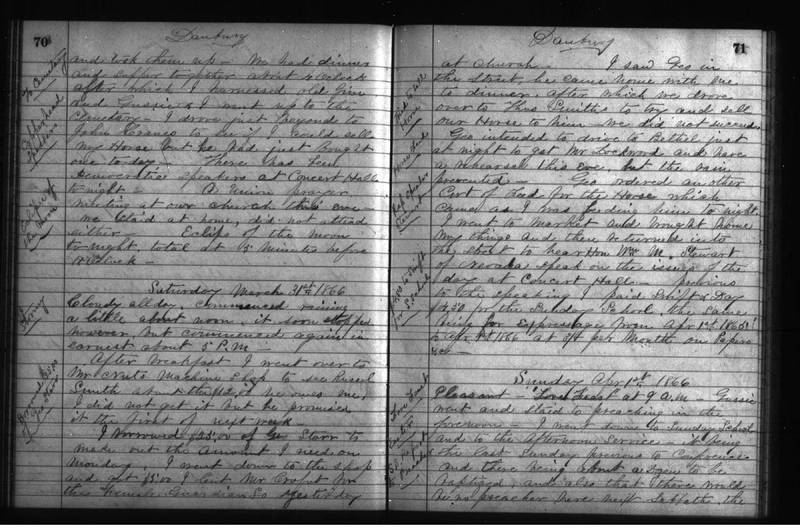 70
Danbury
and took them up - We had dinner
and supper together about 4 O'clock
after which I harnessed old Jim
and Gussie & I went up to the
Cemetery - I drove just beyond to
John to see if I could sell
my Horse but he had just bought
one to-day. - There has been
Democratic speakers at Concert Hall
to night - A Union prayer
meeting at our church this eve -
we staid at home, did not attend
either - Eclips of the Moon
to night, total at 15 minutes before
O'clock -
Saturday March 31st 1866
Cloudy all day, commenced raining
a little about noon, it soon stopped
however, but commenced again in
earnest about 5 P.M.
After breakfast I went over to
Mr Machine Shop to see
Smith about the he owes me,
I did not get it but he promised
it the first of next week
I borrowed $25.00 of Geo Starr to
make out the amount I need on
Monday, I went down to the shop
and got $5.00 I lent Mr Crofut for
the Yesterday
To Cemetery
Speakers
Eclips of
the Moon
Stormy
Borrowed $25.00
Geo Starr
71
Danbury
at church. - I saw Geo in
the street, he came home with me
to dinner, after which we drove
over to to try and sell
our Horse to him we did not succeed.
Geo intended to drive to Bethel just
at night to get Mr Lockwood and have
a rehearsal this eve, but the rain
prevented - Geo ordered another
of feed for the Horse which
came as I was feeding him to night.
I went to market and brought home
my things and then returned into
the street to hear Hon Wm M. Stewart
of Nevada speak on the issues of the
day at Concert Hall - previous
to the speaking I paid Swift & Day
for the Sunday School the same
being for Expressage from Apr 1st 1865
to Apr 1st 1866 at per Month on
Sunday Apr 1st 1866
Pleasant - Love feast at 9 A.M. - Gussie
went and staid to preaching in the
forenoon - I went down to Sunday School
and to the afternoon Service - it being
the last Sunday previous to Conference
and there being about a dozen to be
baptized, and also that there would
be no preacher here next Sabbath, the
Horse
Horse feed
Love feast